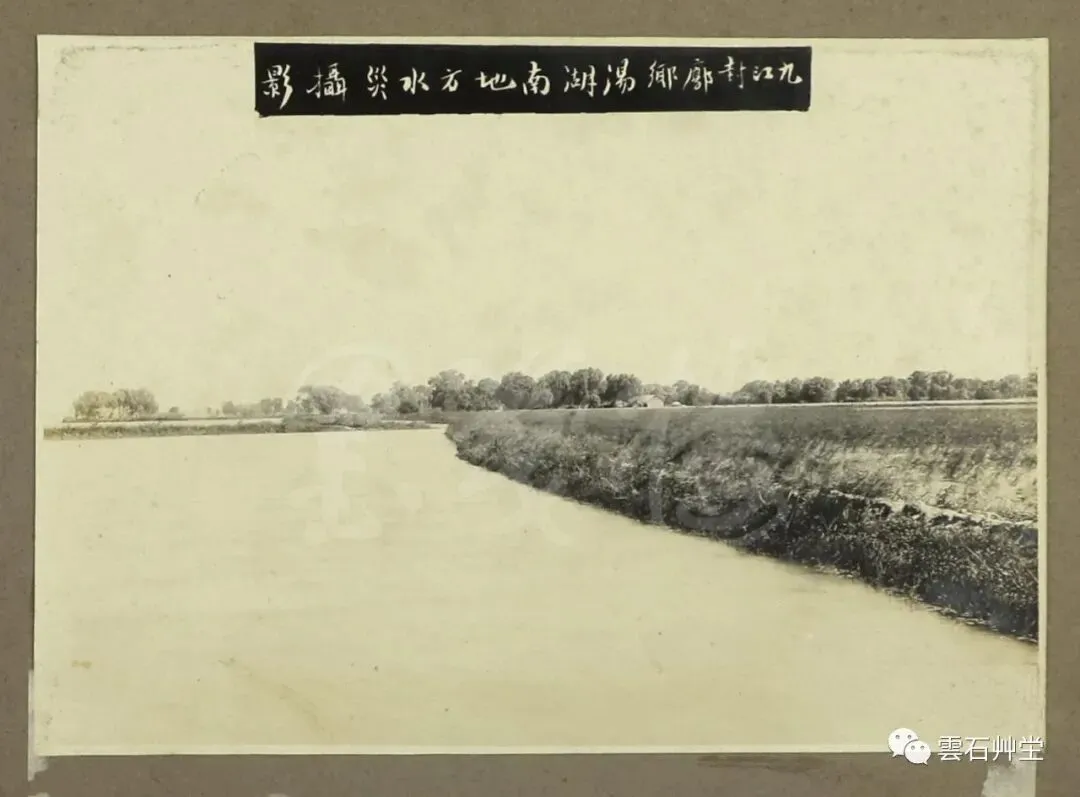 九江封廓鄉湯湖南地方水災攝影
雲石艸堂